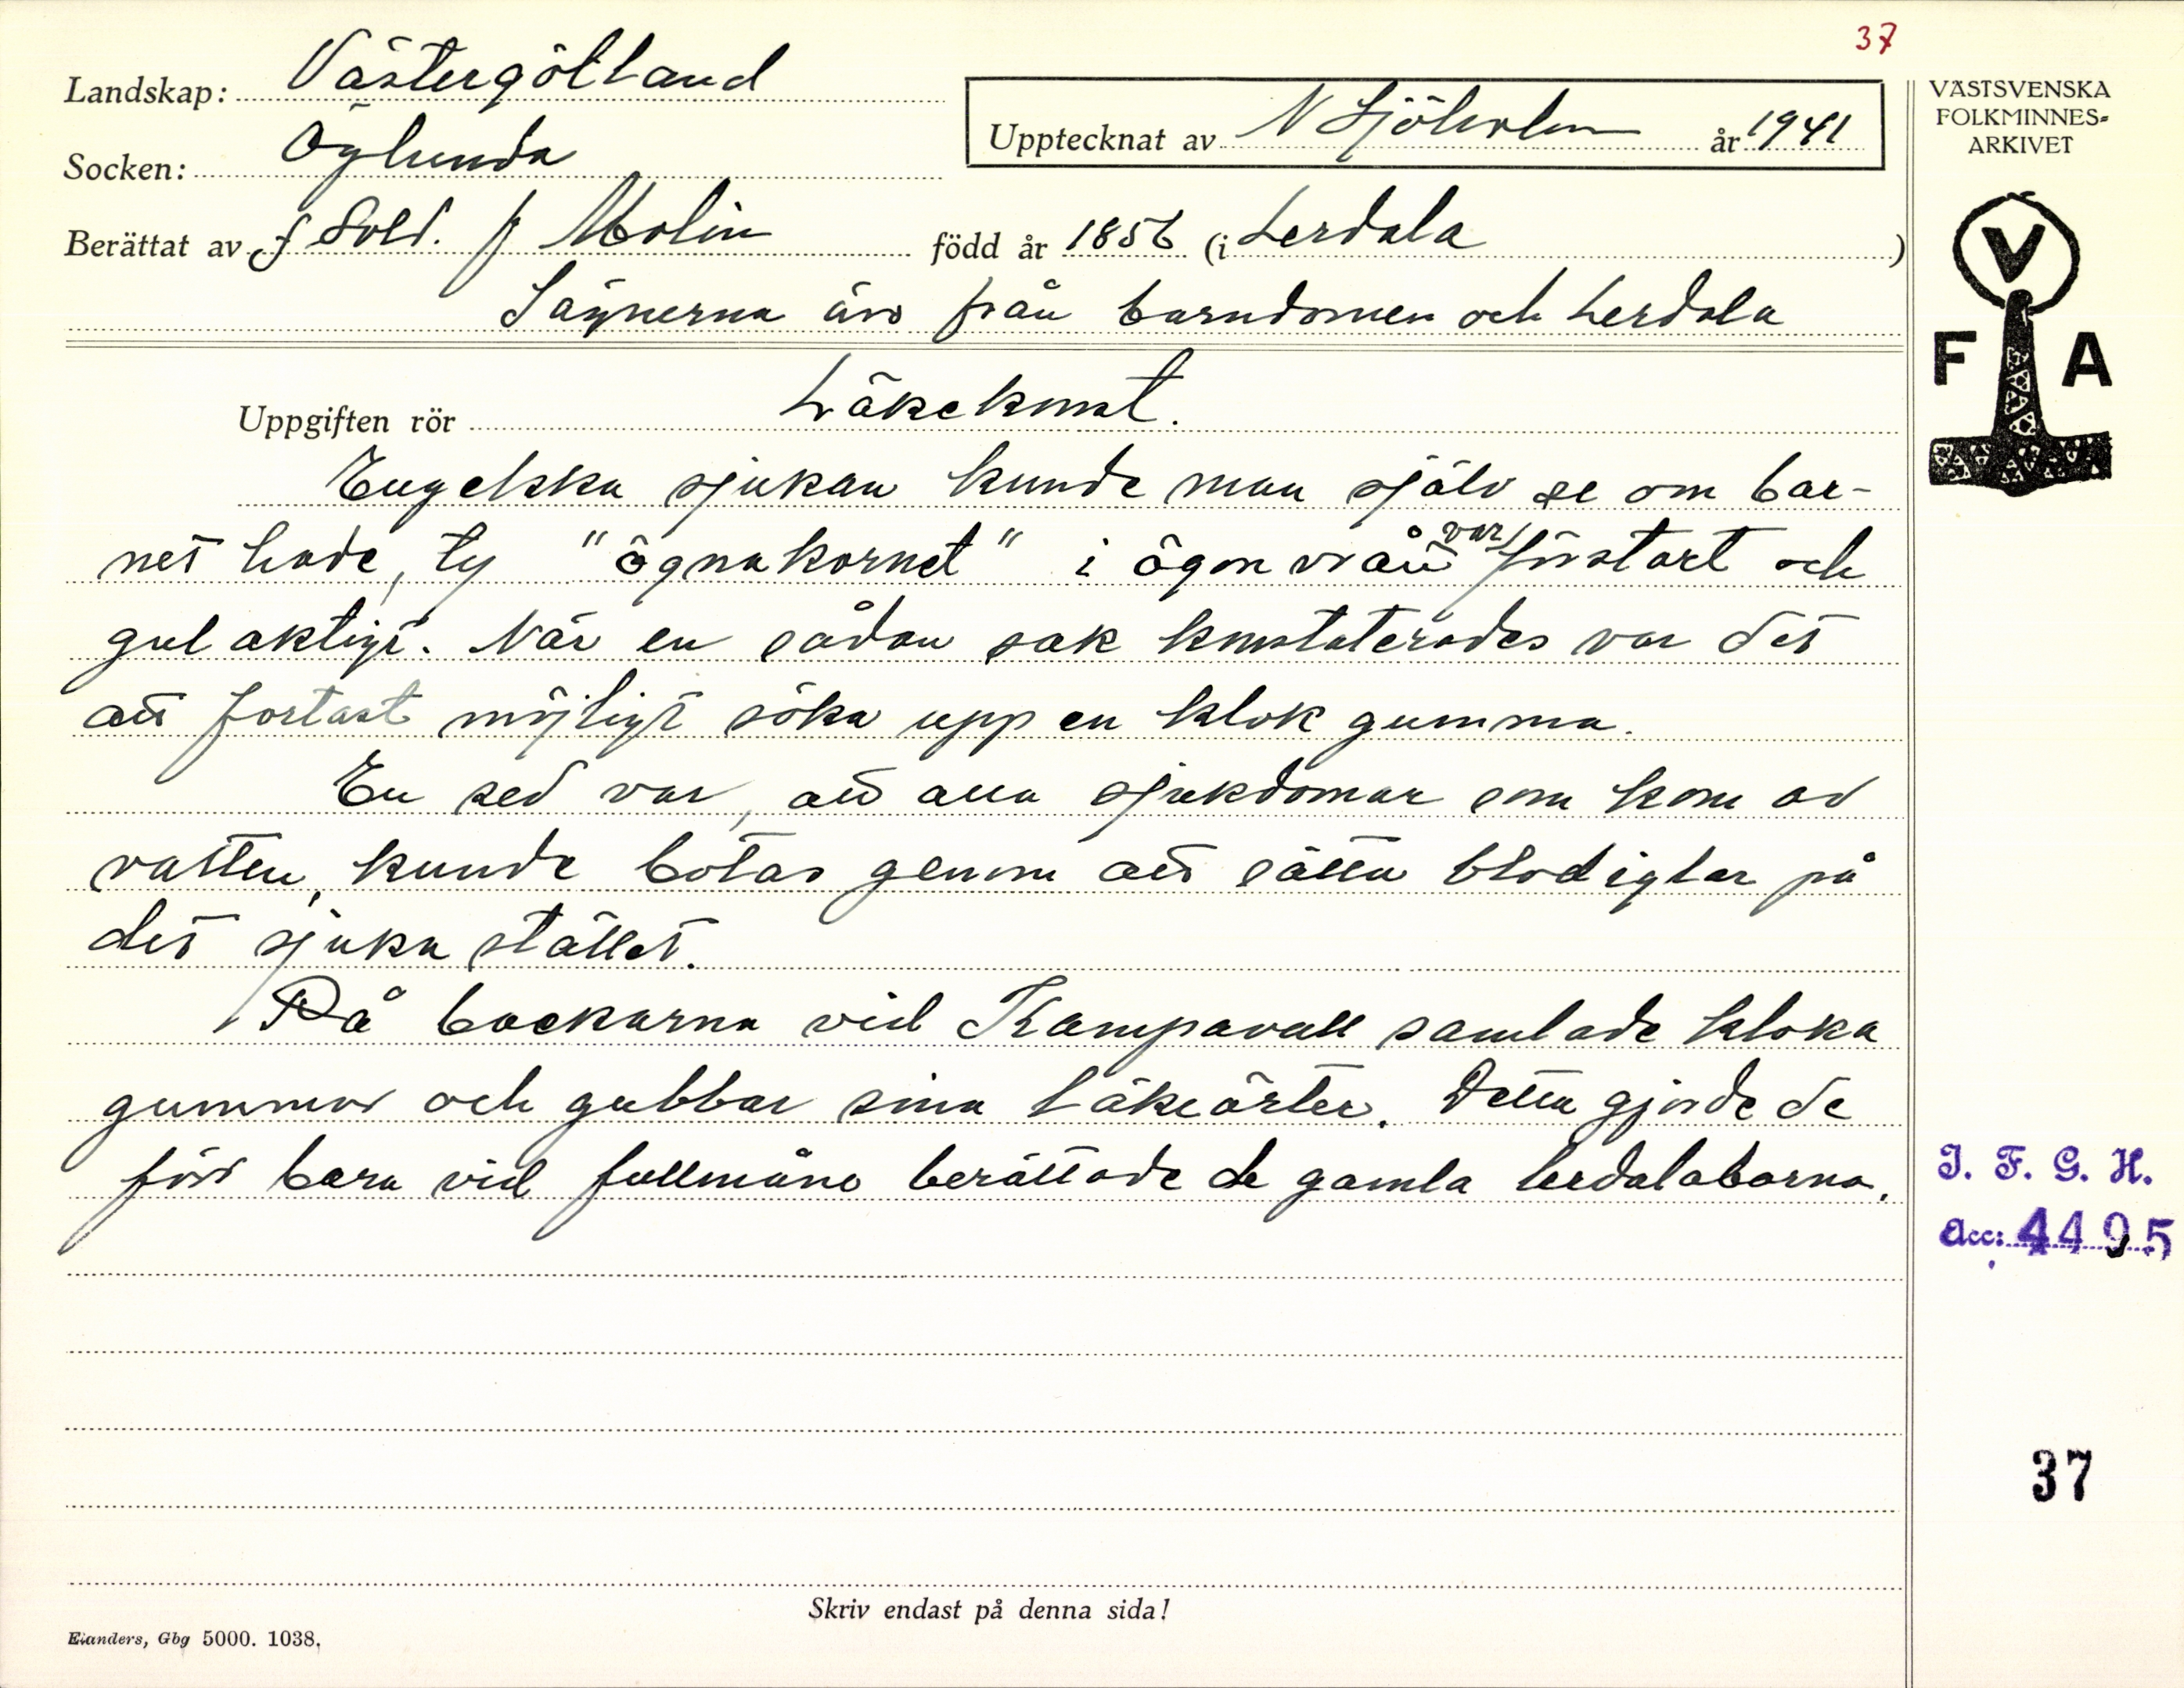 37
Landskap: Västergötland
Socken: Öglunda
Upptecknat av N Sjöholm år 1941
VÄSTSVENSKA
FOLKMINNES-
ARKIVET
Berättat av f Sold. J Molin född år 1856 (i Lerdala)
Sägnerna äro från barndomen och Lerdala
V
F A
Uppgiften rör Läkekonst.
Engelska sjukan kunde man själv se om bar-
net hade, ty "ögnakornet" i ögonvrån var förstort och
gulaktigt. När en sådan sak konstaterades var det
att fortast möjligt söka upp en klok gumma.
En sed var, att alla sjukdomar som kom av
vatten, kunde botas genom att sätta blodiglar på
det sjuka stället.
På backarna vid Kampavall samlade kloka
gummor och gubbar sina läkeörter. Detta gjorde de
förr bara vid fullmåne berättade de gamla lerdalaborna.
I. F. G. H.
Acc: 4495
37
Skriv endast på denna sida!
Elanders, Gbg 5000. 1038.